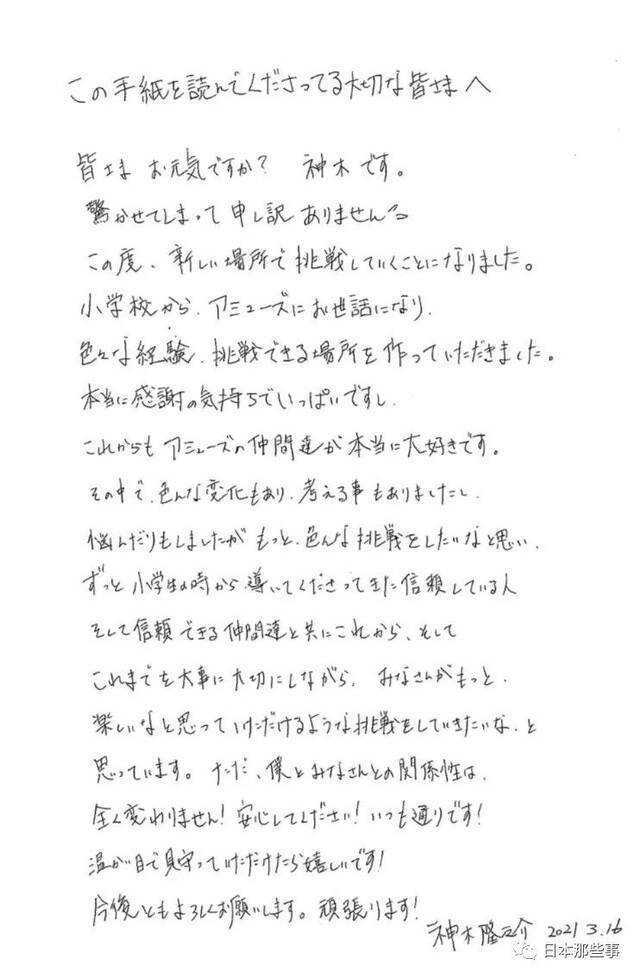 この手紙を読んでくださってる大切な皆さまへ
皆さま お元気ですか? 神木です。
驚かせてしまって申し訳ありません。
この度、新しい場所で挑戦していくことになりました。
小学校から、アミューズにお世話になり、
色々な経験、挑戦できる場所を作っていただきました。
本当に感謝の気持ちでいっぱいですし、
これからもアミューズの仲間達が本当に大好きです。
その中で、色んな変化もあり、考える事もありましたし、
悩んだりもしましたがもっと、色んな挑戦をしたいなと思い、
ずっと小学生の時から導いてくださってきた信頼している人
そして信頼できる仲間達と共にこれから、そして
これまでを大事に大切にしながら、みなさんがもっと、
楽しいなと思っていただけるような挑戦をしていきたいな、と
思っています。ただ、僕とみなさんとの関係性は、
全く変わりません!安心してください!いつも通りです!
温かい目で見守っていただけたら嬉しいです!
今後ともよろしくお願いします。頑張ります!
神木隆之介 2021 3.16
日本那些事